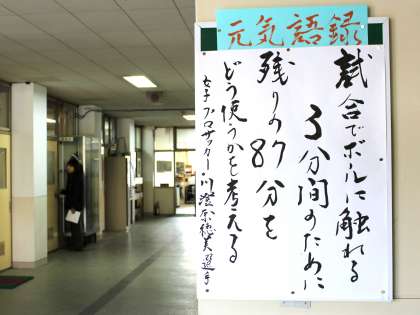 元気語録
試合でボールに触れる
3分間のために
残りの87分を
どう使うかを考える
女子プロサッカー・川澄奈穂美選手